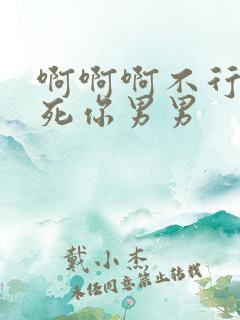 啊啊啊不行
死你男男
戴小杰
未经同意禁止转载